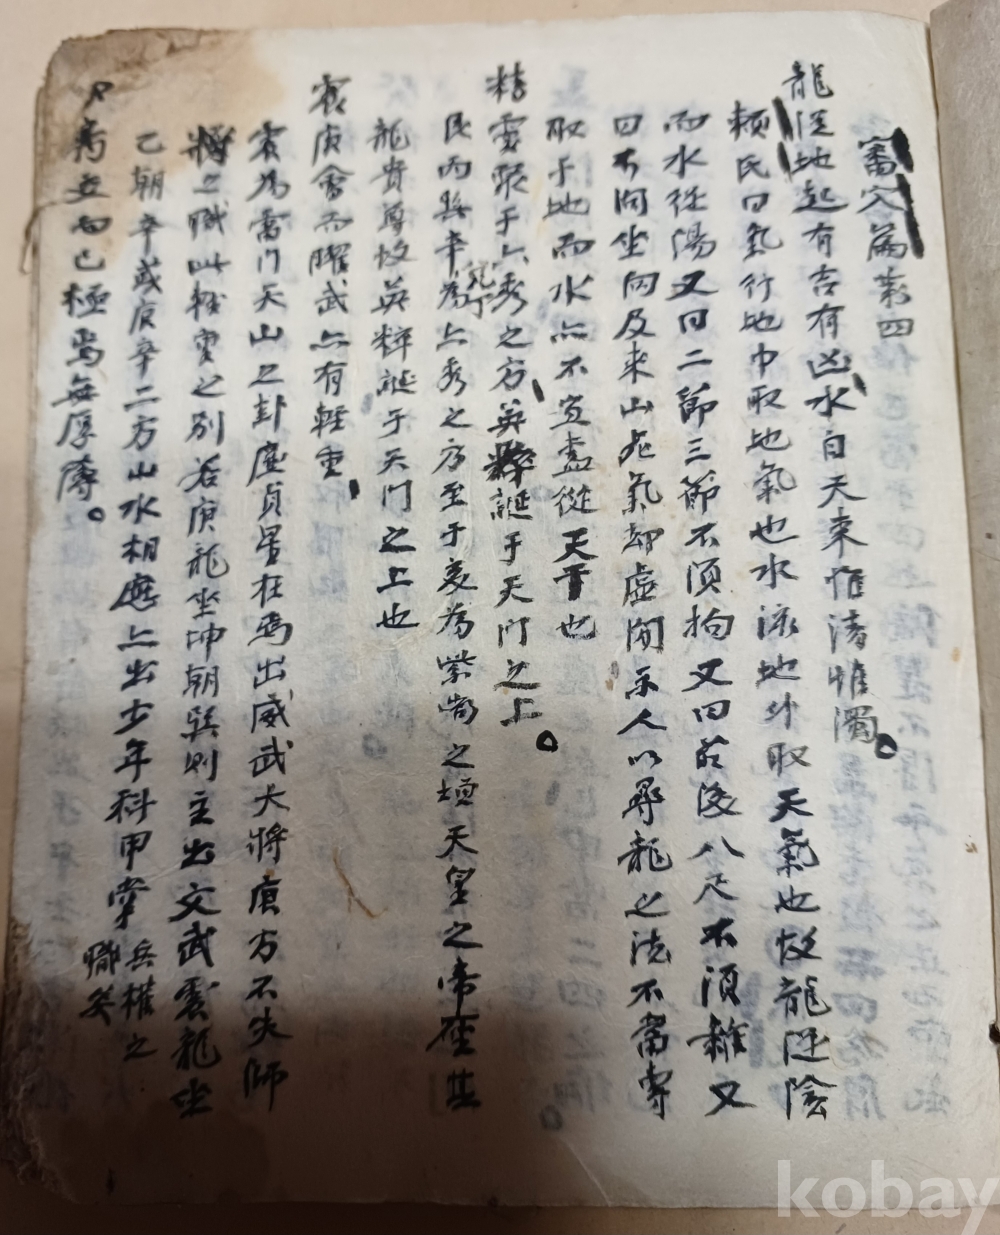 審穴篇第四
龍從地起有吉有凶水自天來惟清惟濁。
賴氏曰氣行地中取地氣也水流地外取天氣也故龍從陰
而水從陽又曰二節三節不須拘又曰前後八尺不須雜又
曰不問坐向及來山死氣却虛閒示人以尋龍之法不當專
取于地而水亦不宜盡從天干也
精靈聚于六秀之方英粹誕于天門之上。
艮丙巽辛兌丁為六秀之方至于亥為紫微之垣天皇之帝座其
龍貴尊故英粹誕于天門之上也
震庚會而曜武亦有輕重
震為雷門天山之卦廉貞星在焉出威武大將庚方不失師
將之職此輕重之別若庚龍坐坤朝巽則主出文武震龍坐
乙朝辛或庚辛二方山水相應亦出少年科甲掌兵權之
職矣
丙已極焉無厚薄。
kobay